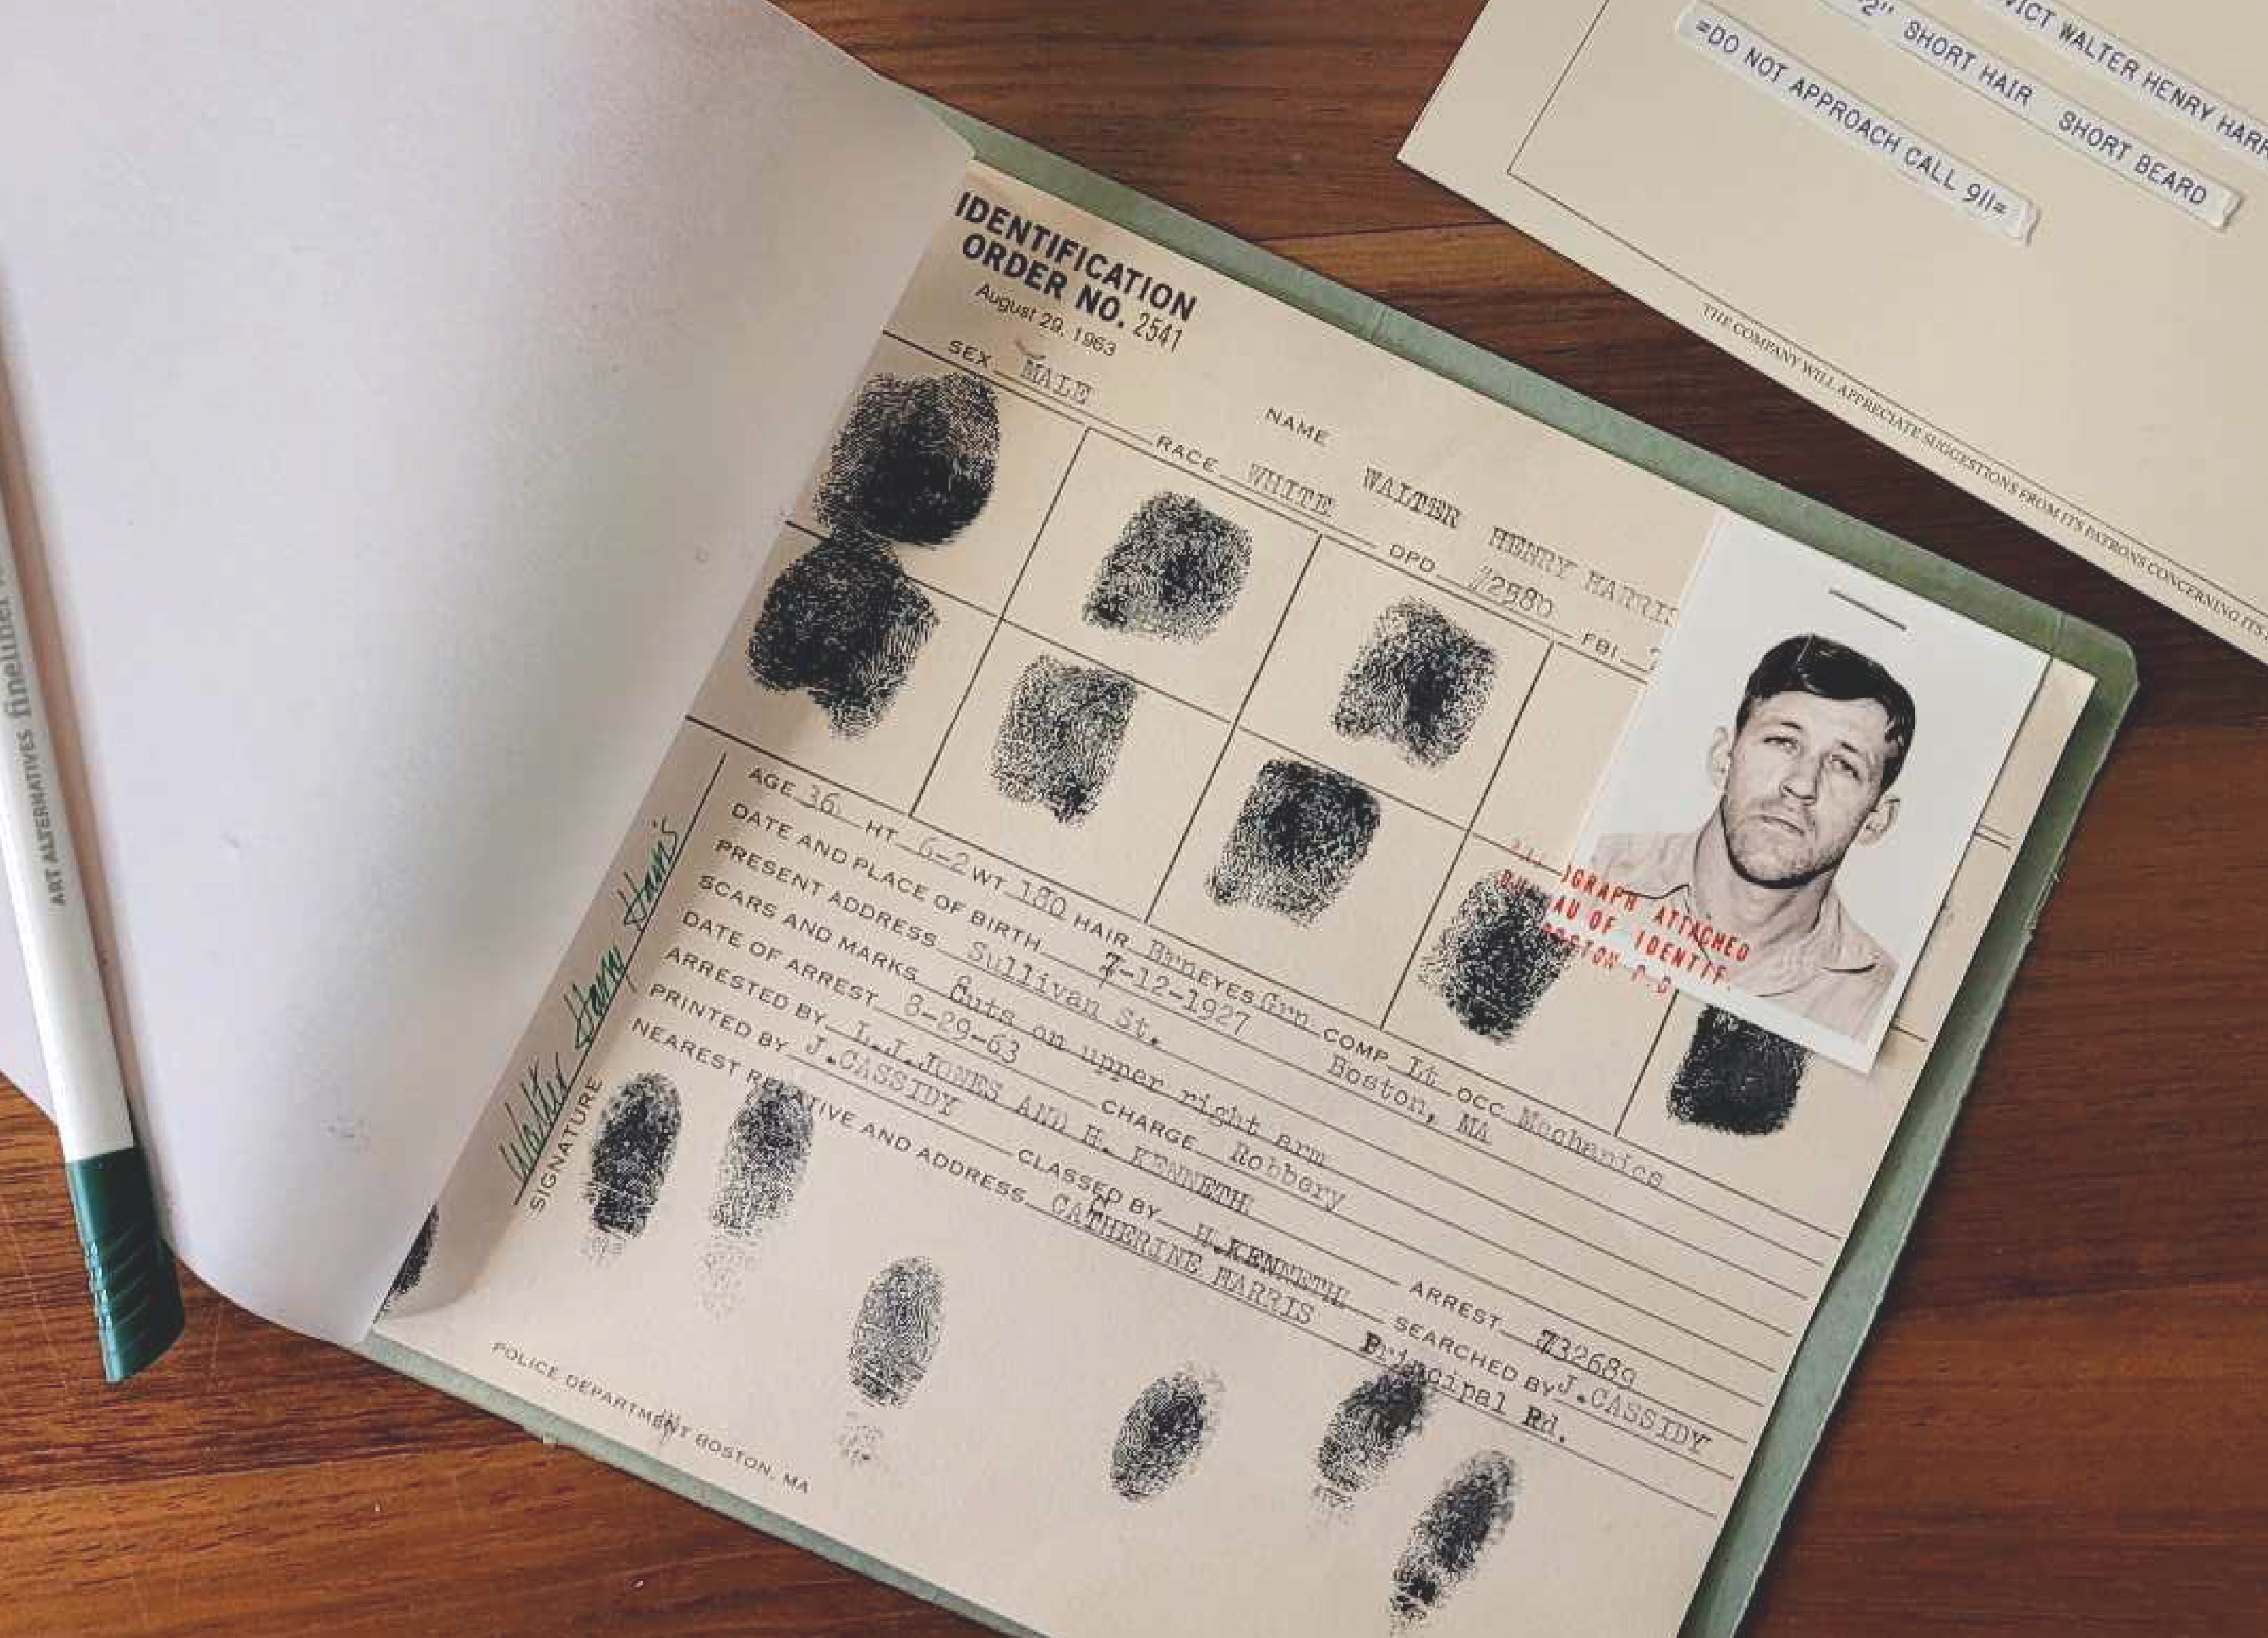 VICT WALTER HENRY HARR
2" SHORT HAIR SHORT BEARD
=DO NOT APPROACH CALL 911=
THE COMPANY WILL APPRECIATE SUGGESTIONS FROM ITS PATRONS CONCERNING ITS
IDENTIFICATION
ORDER NO. 2541
August 29, 1963
NAME WALTER HENRY HARRIS
SEX MALE RACE WHITE DPD #2980 FBI
PHOTOGRAPH ATTACHED
AU OF IDENTIF.
BOSTON P.D.
AGE 36 HT 6-2 WT 180 HAIR Brn EYES Grn COMP Lt OCC Mechanics
DATE AND PLACE OF BIRTH 7-12-1927 Boston, MA
PRESENT ADDRESS Sullivan St.
SCARS AND MARKS Cuts on upper right arm
DATE OF ARREST 8-29-63 CHARGE Robbery
ARRESTED BY L.J.JONES AND H. KENNETH ARREST #32689
PRINTED BY J.CASSIDY CLASSED BY H.KENNETH SEARCHED BY J.CASSIDY
NEAREST RELATIVE AND ADDRESS CATHERINE HARRIS Principal Rd.
Walter Henry Harris
SIGNATURE
POLICE DEPARTMENT BOSTON, MA
ART ALTERNATIVES fineliner